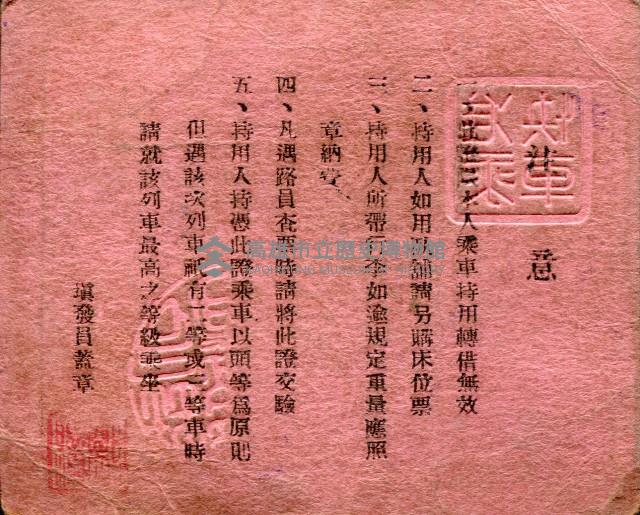 注意
一、此證本人乘車持用轉借無效
二、持用人如用臥舖請另購床位票
三、持用人所帶行李如逾規定重量應照
章納費
四、凡遇路員查票時請將此證交驗
五、持用人持憑此證乘車以頭等為原則
但遇該次列車祇有二等或三等車時
請就該列車最高之等級乘坐
填發員蓋章
高雄市立歷史博物館
KAOHSIUNG MUSEUM OF HISTORY